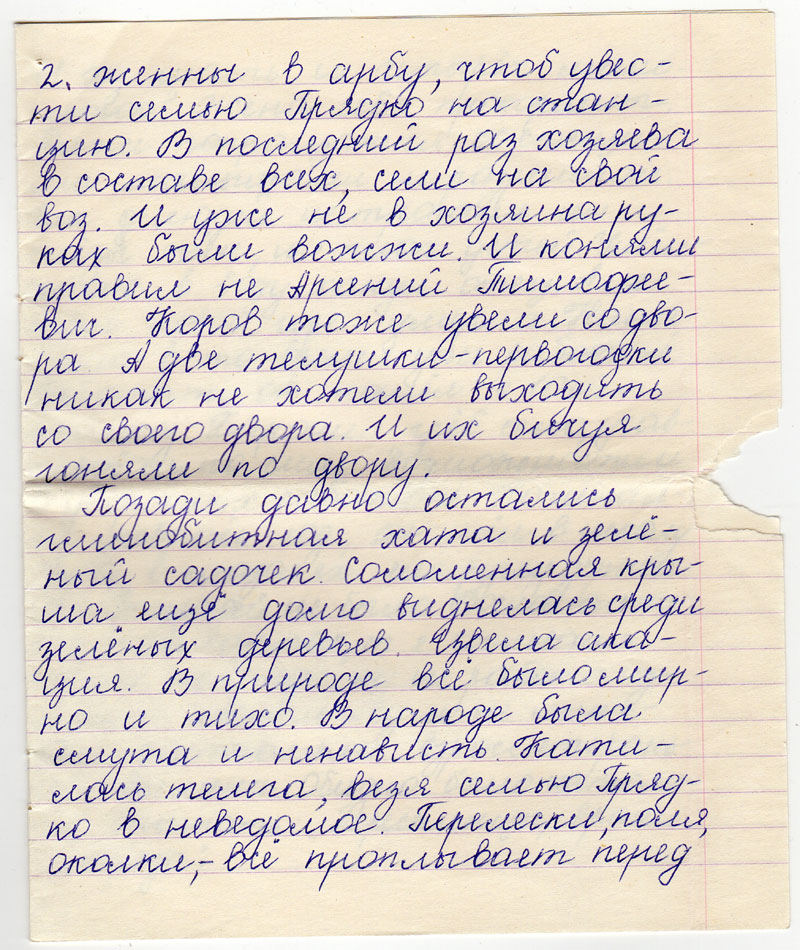 2. женны в арбу, чтоб увес-
ти семью Прядко на стан-
цию. В последний раз хозяева
в составе всех, сели на свой
воз. И уже не в хозяина ру-
ках были вожжи. И конями
правил не Арсений Тимофее-
вич. Коров тоже увели со дво-
ра. А две телушки-первогодки
никак не хотели выходить
со своего двора. И их бичуя
гоняли по двору.
Позади давно остались
глинобитная хата и зелё-
ный садочек. Соломенная кры-
ша ещё долго виднелась среди
зелёных деревьев. Цвела ака-
ция. В природе всё было мир-
но и тихо. В народе была
смута и ненависть. Кати-
лась телега, везя семью Пряд-
ко в неведомое. Перелески, поля,
околки,- всё проплывает перед